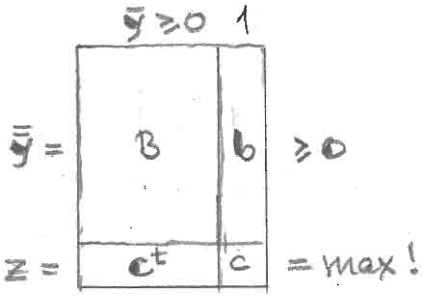 ȳ ≥ 0 1
ȳ̄ = B b ≥ 0
z = cᵗ c = max!